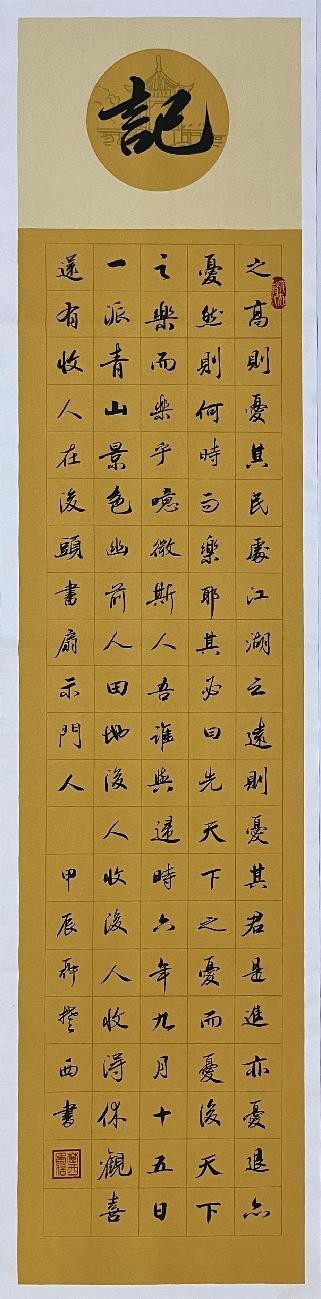 記
之高則憂其民處江湖之遠則憂其君是進亦憂退亦
憂然則何時而樂耶其必曰先天下之憂而憂後天下
之樂而樂乎噫微斯人吾誰與歸時六年九月十五日
一派青山景色幽前人田地後人收後人收得休觀喜
還有收人在後頭書扇示門人 甲辰 西書